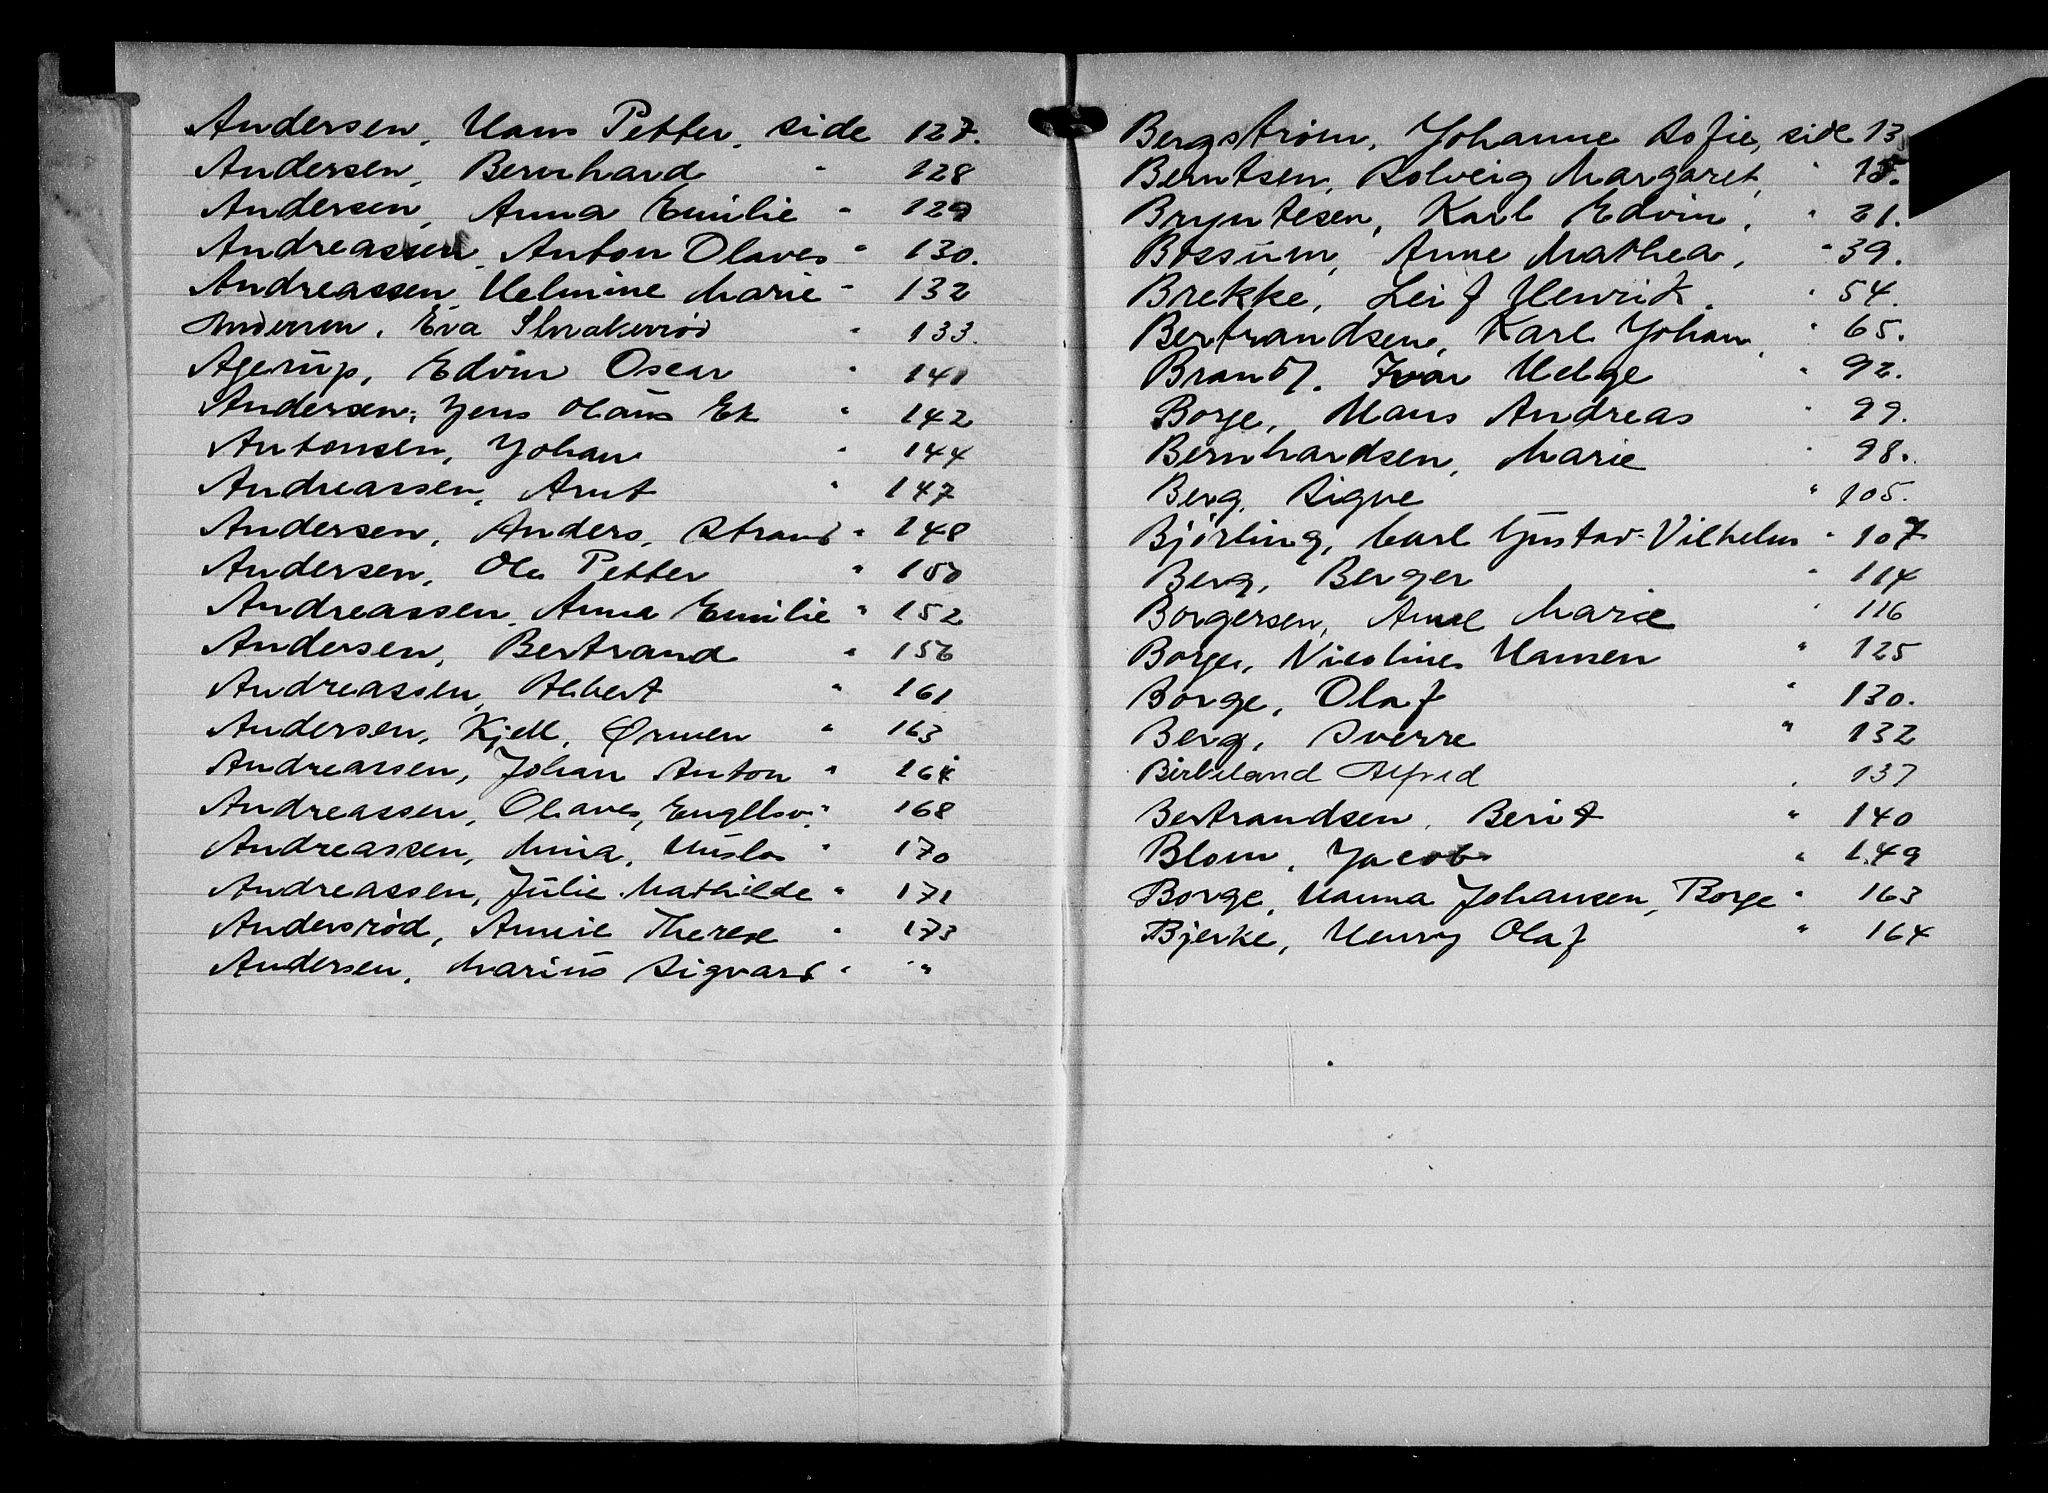 Andersen, Hans Petter, side 127.
Andersen, Bernhard " 128
Andersen, Anna Emilie " 129
Andreassen, Anton Olaves " 130.
Andreassen, Helmine Marie " 132
Andersen, Eva " 133.
Agerüp, Edvin Oscar " 141
Andersen, Jens Olaüs Ek " 142
Antonsen, Johan " 144
Andreassen, Arnt " 147
Andersen, Anders, Strand " 148
Andersen, Ole Petter " 150
Andreassen, Anna Emilie " 152
Andersen, Bertrand " 156
Andreassen, Albert " 161
Andersen, Kjell, Ørmen " 163
Andreassen, Johan Anton " 164
Andreassen, Olaves, Englbsv. " 168
Andreassen, Mina, " 170
Andreassen, Jülie Mathilde " 171
Andersrød, Annie Therese " 173
Andersen, Mariüs Sigvard " "
Bergstrøm, Johanne Sofie, side 13
Berntsen, Solveig Margaret, " 18.
Bryntesen, Karl Edvin, " 21.
Bossüm, Anne Mathea, " 39.
Brekke, Leif Henrik, " 54.
Bertrandsen, Karl Johan, " 65.
Brandt, Ivar Helge " 92.
Borge, Hans Andreas " 99.
Bernhardsen, Marie " 98.
Berg, Signe " 105.
Bjørling, Carl Gustav Vilhelm " 107
Berg, Berger " 114
Borgersen, Anne Marie " 116
Borge, Nicoline Hansen " 125
Borge, Olaf " 130.
Berg, Sverre " 132
Birkeland Alfred " 137
Bertrandsen, Berit " 140
Blom, Jacob " 149
Borge, Hanna Johansen, Borge " 163
Bjerke, Henry Olaf " 164